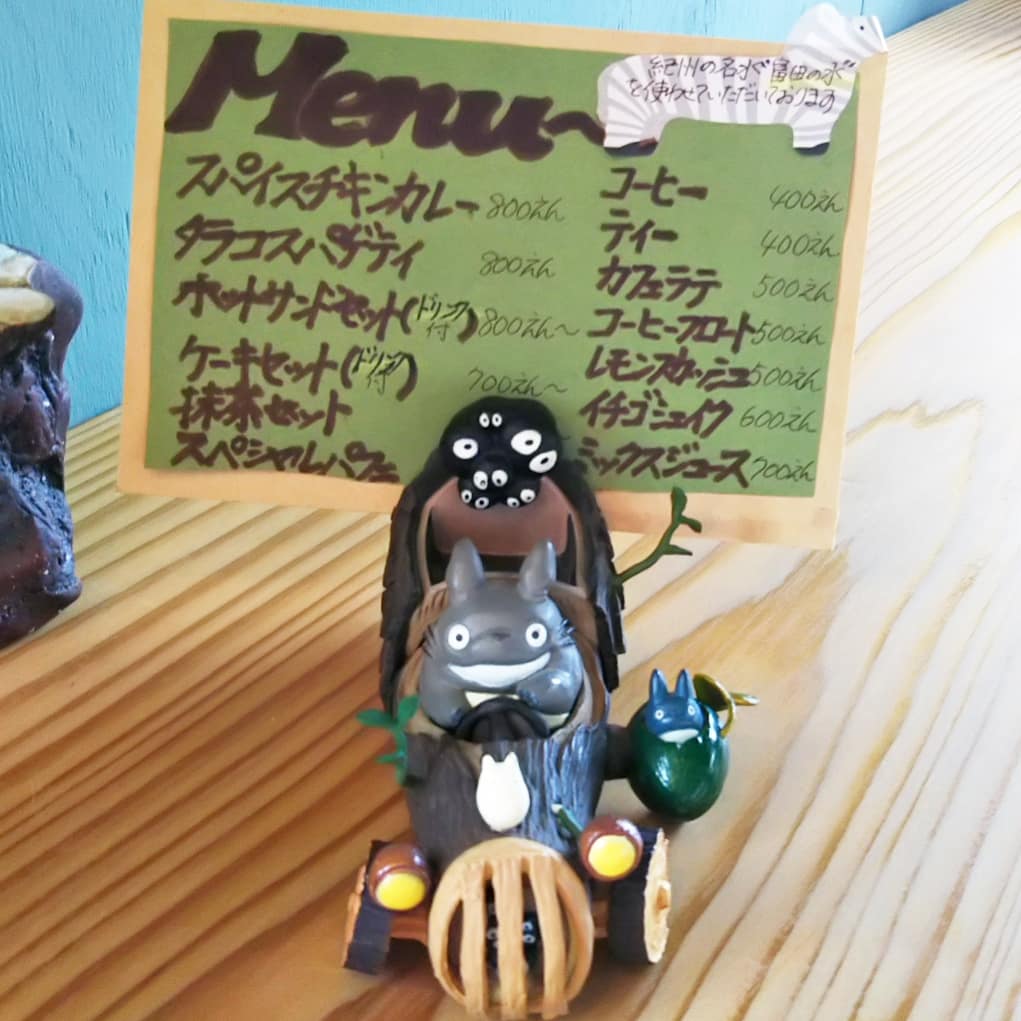 Menu~
紀州の名水"富田の水"
を使わせていただいております
スパイスチキンカレー 800えん
タラコスパゲティ 800えん
ホットサンドセット(ドリンク付) 800えん~
ケーキセット(ドリンク付) 700えん~
抹茶セット
スペシャルパフェ
コーヒー 400えん
ティー 400えん
カフェラテ 500えん
コーヒーフロート 500えん
レモンスカッシュ 500えん
イチゴシェイク 600えん
ミックスジュース 700えん